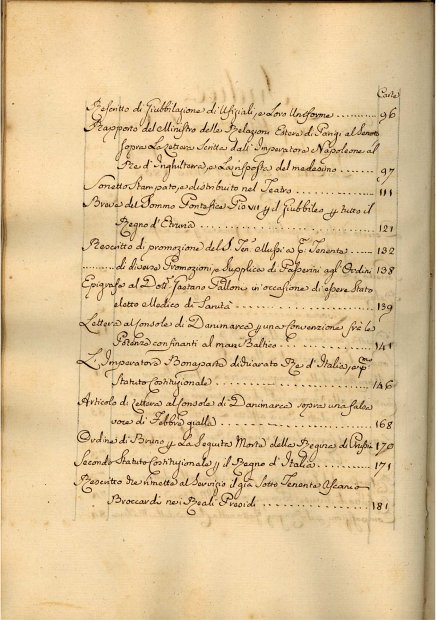 Carte
Rescritto di Giubbilazione di Ufiziali, e Loro Uniforme .......... 96
Rapporto del Ministro delle Relazioni Estere di Parigi al Senato
sopra La Lettera Scritta dall' Imperatore Napoleone al
Re d' Inghilterra, e La risposta del medesimo .......... 97
Sonetto Stampato, e distribuito nel Teatro .......... 111
Breve del Sommo Pontefice Pio VII p il Giubbileo p tutto il
Regno d' Etruria .......... 121
Rescritto di promozione del S. Ten. Mussi a P. Tenente .......... 132
.......... di diverse Promozioni, e Supplica di Passerini agl' Ordini 138
Epigrafe al Dott. Gaetano Palloni in occasione di essere Stato
eletto Medico di Sanità .......... 139
Lettera al Console di Danimarca p una Convenzione frà le
Potenze confinanti al mare Baltico .......... 141
L' Imperatore Bonaparte dichiarato Re d' Italia, e pmo
Statuto Costituzionale .......... 146
Articolo di Lettera al Console di Danimarca sopra una falsa
voce di Febbre gialla .......... 168
Ordine di Bruno p La Seguita Morte della Regina di Prussia 170
Secondo Statuto Costituzionale p il Regno d' Italia .......... 171
Rescritto che rimette al Servizio il già Sotto Tenente Ascanio
Broccardi nei Reali Presidi .......... 181